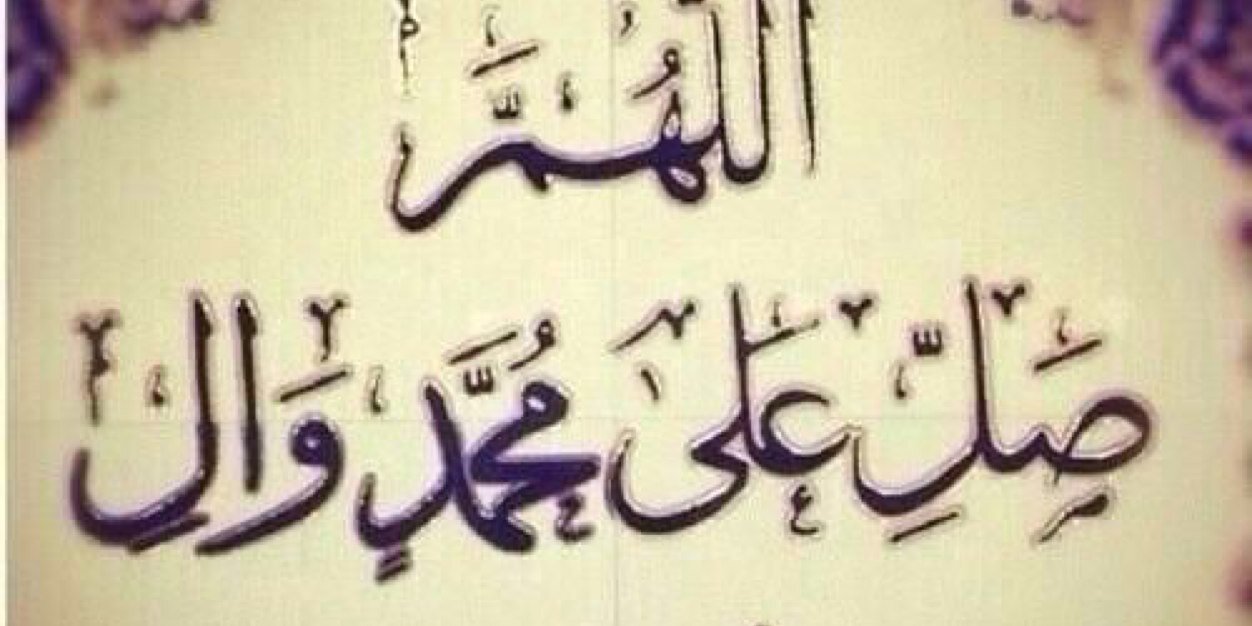 اللّٰهُمَّ
صَلِّ عَلَى مُحَمَّدٍ وَالِ